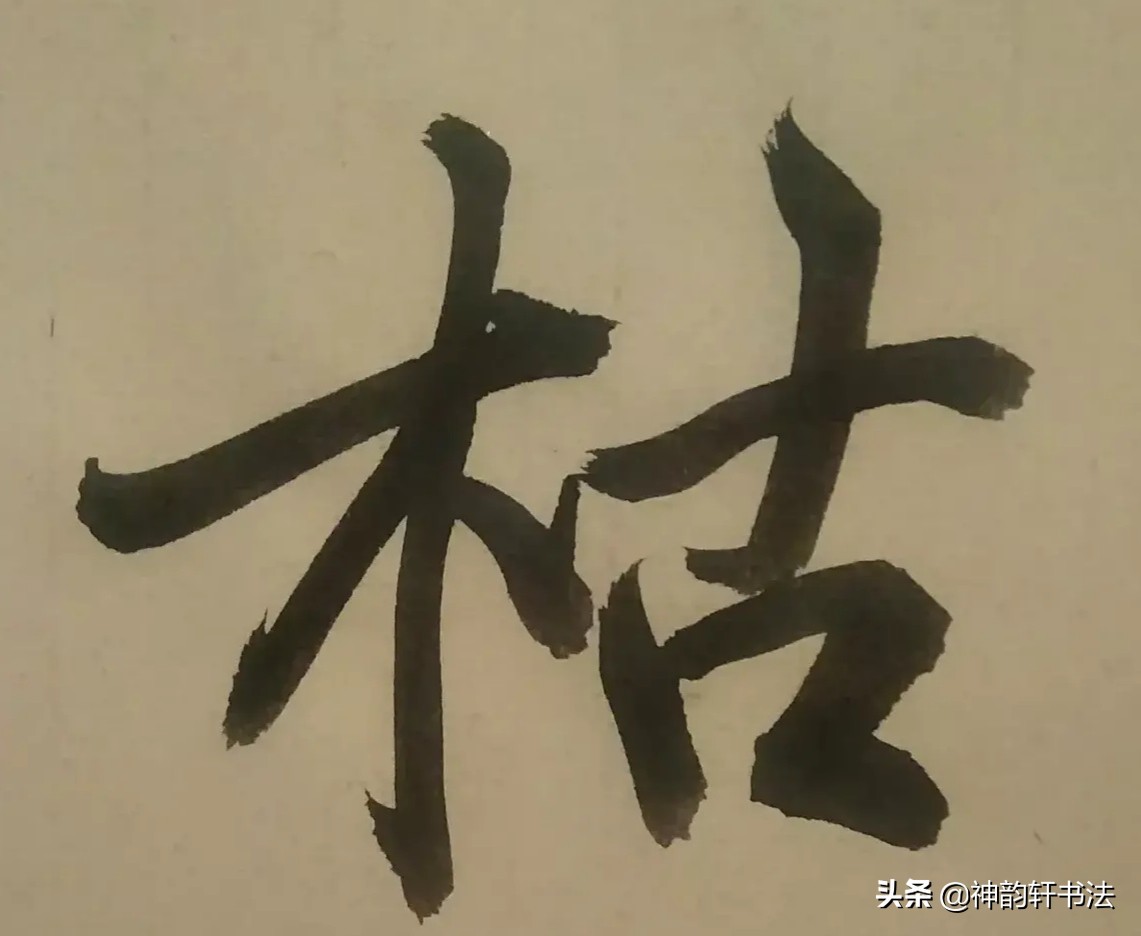 枯
头条 @神韵轩书法